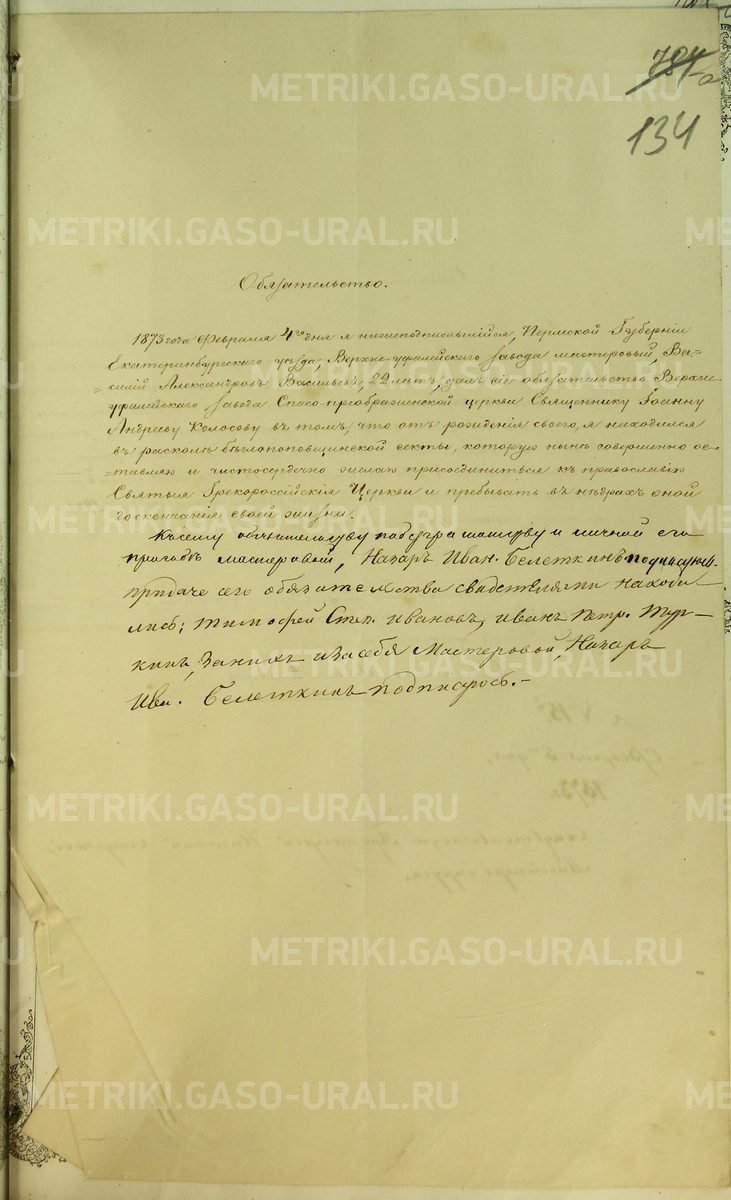 784-а
134
Обязательство.
1873 года Февраля 4го дня я нижеподписавшійся, Пермской Губерніи
Екатеринбургскаго уѣзда, Верхне-уфалейскаго завода мастеровый, Ва=
=силій Александровъ Васильевъ, 22 лѣтъ, далъ сіе обязательство Верхне
уфалейскаго завода Спасо-преображенской церкви Священнику Іоанну
Андрееву Колосову въ томъ, что отъ рожденія своего, я находился
въ расколѣ бѣглопоповщинской секты, которую нынѣ совершенно ос=
=тавляю и чистосердечно желаю присоединиться къ православію
Святыя Грекороссійскія Церкви и пребывать въ нѣдрахъ оной
до скончанія своей жизни.
Къ сему обязательству по безграматству и личной его
прозьбѣ мастеровой, Назаръ Иван. Белеткинъ подписуюсь.
придаче сего обязательства свидетелями находи
лись; тимофей Степ. Ивановъ, иванъ Петр. Тур-
кинъ, Занихъ изасебя Мастеровой, Назаръ
Ива. Белеткинъ подписуюсь.-
METRIKI.GASO-URAL.RU